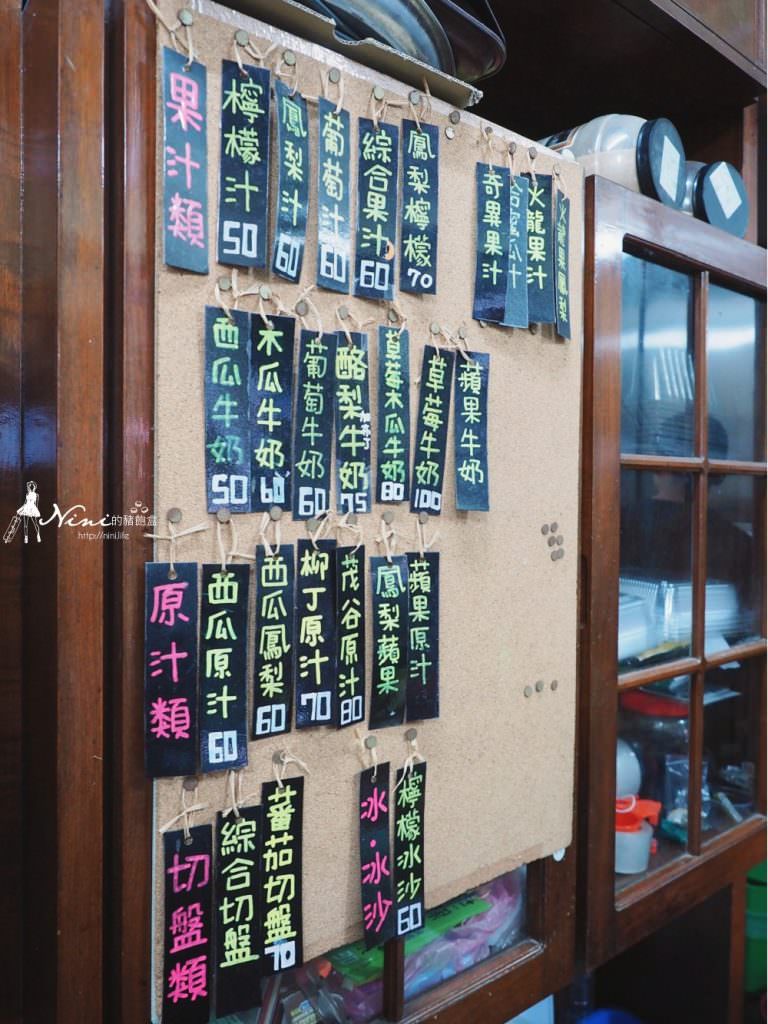 果汁類
檸檬汁 50
鳳梨汁 60
葡萄汁 60
綜合果汁 60
鳳梨檸檬 70
奇異果汁
哈蜜瓜汁
火龍果汁
火龍果鳳梨
西瓜牛奶 50
木瓜牛奶 60
葡萄牛奶 60
酪梨牛奶 加布丁 75
草莓木瓜牛奶 80
草莓牛奶 100
蘋果牛奶
原汁類
西瓜原汁 60
西瓜鳳梨 60
柳丁原汁 70
茂谷原汁 80
鳳梨蘋果
蘋果原汁
切盤類
綜合切盤
蕃茄切盤 70
冰·冰沙
檸檬冰沙 60
Nini的豬飽盒
http://nini.life